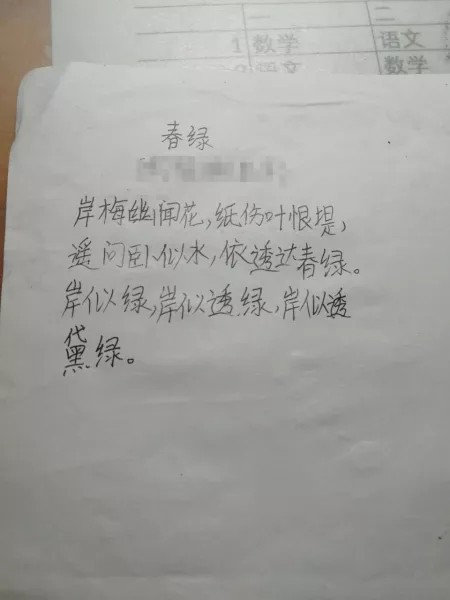 一 二
1 数学 语文
语文 数学
春绿
岸梅幽闻花,纸伤叶恨堤,
遥问卧似水,依透达春绿。
岸似绿,岸似透绿,岸似透
黛绿。